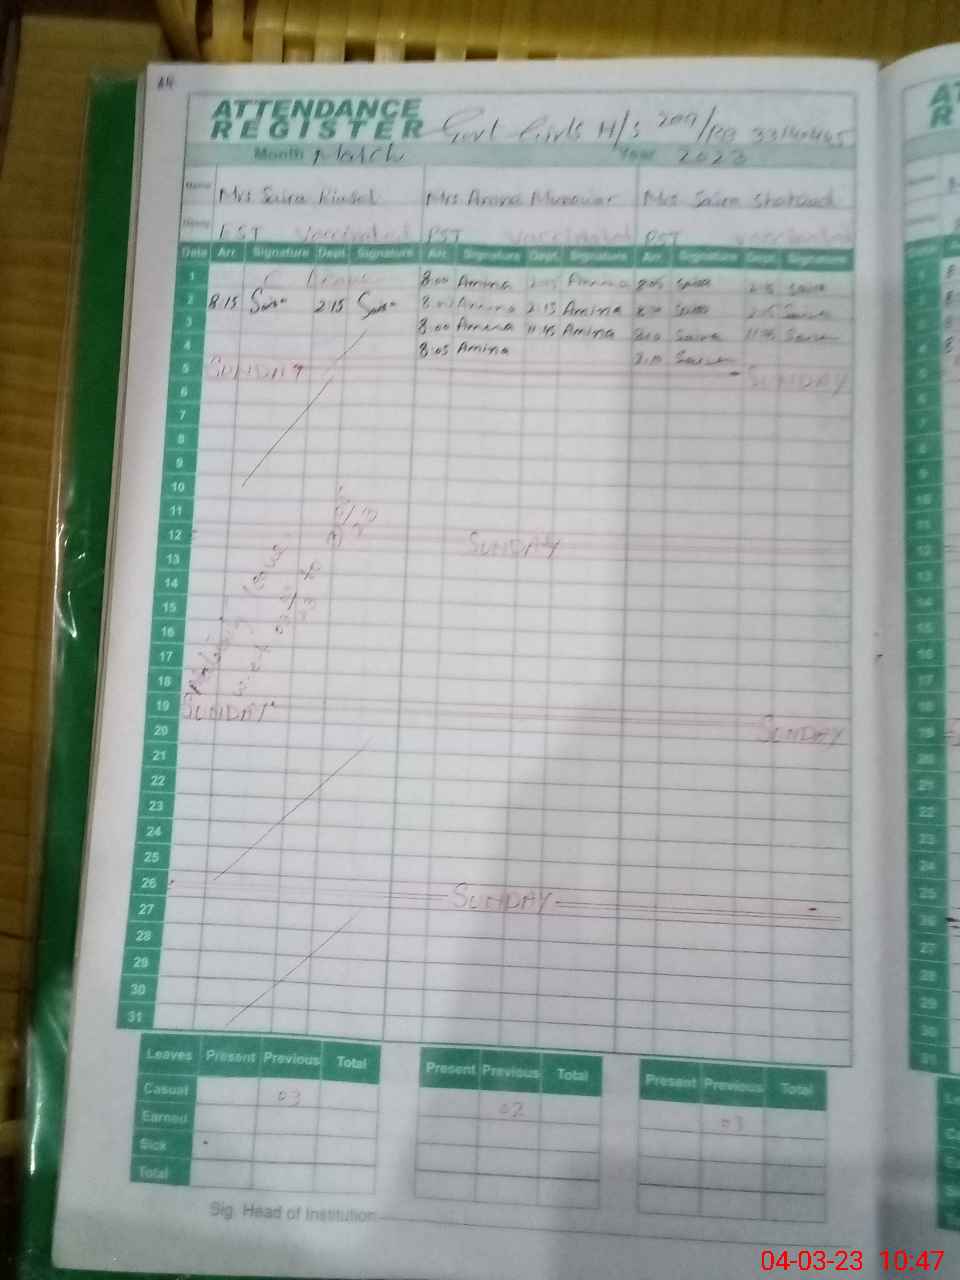 ATTENDANCE
REGISTER Govt Girls H/S 209/RB 33140445
Month March Year 2023
Name Mrs Saira Mrs Amina Munawar Mrs Saira Shahzad
EST Vaccinated PST Vaccinated PST Vaccinated
Date Arr. Signature Dept. Signature Arr. Signature Dept. Signature Arr. Signature Dept. Signature
1 8:00 Amina 2:15 Amina 8:05 Saira 2:15 Saira
2 8:15 Saira 2:15 Saira 8:00 Amina 2:15 Amina Saira 2:15 Saira
3 8:00 Amina 11:45 Amina 8:10 Saira 11:45 Saira
4 8:05 Amina 8:10 Saira
5 SUNDAY SUNDAY
6
7
8
9
10
11
12 SUNDAY
13
14
15
16
17
18
19 SUNDAY SUNDAY
20
21
22
23
24
25
26 SUNDAY
27
28
29
30
31
Leaves Present Previous Total Present Previous Total Present Previous Total
Casual 03 02
Earned
Sick
Total
Sig. Head of Institution
04-03-23 10:47